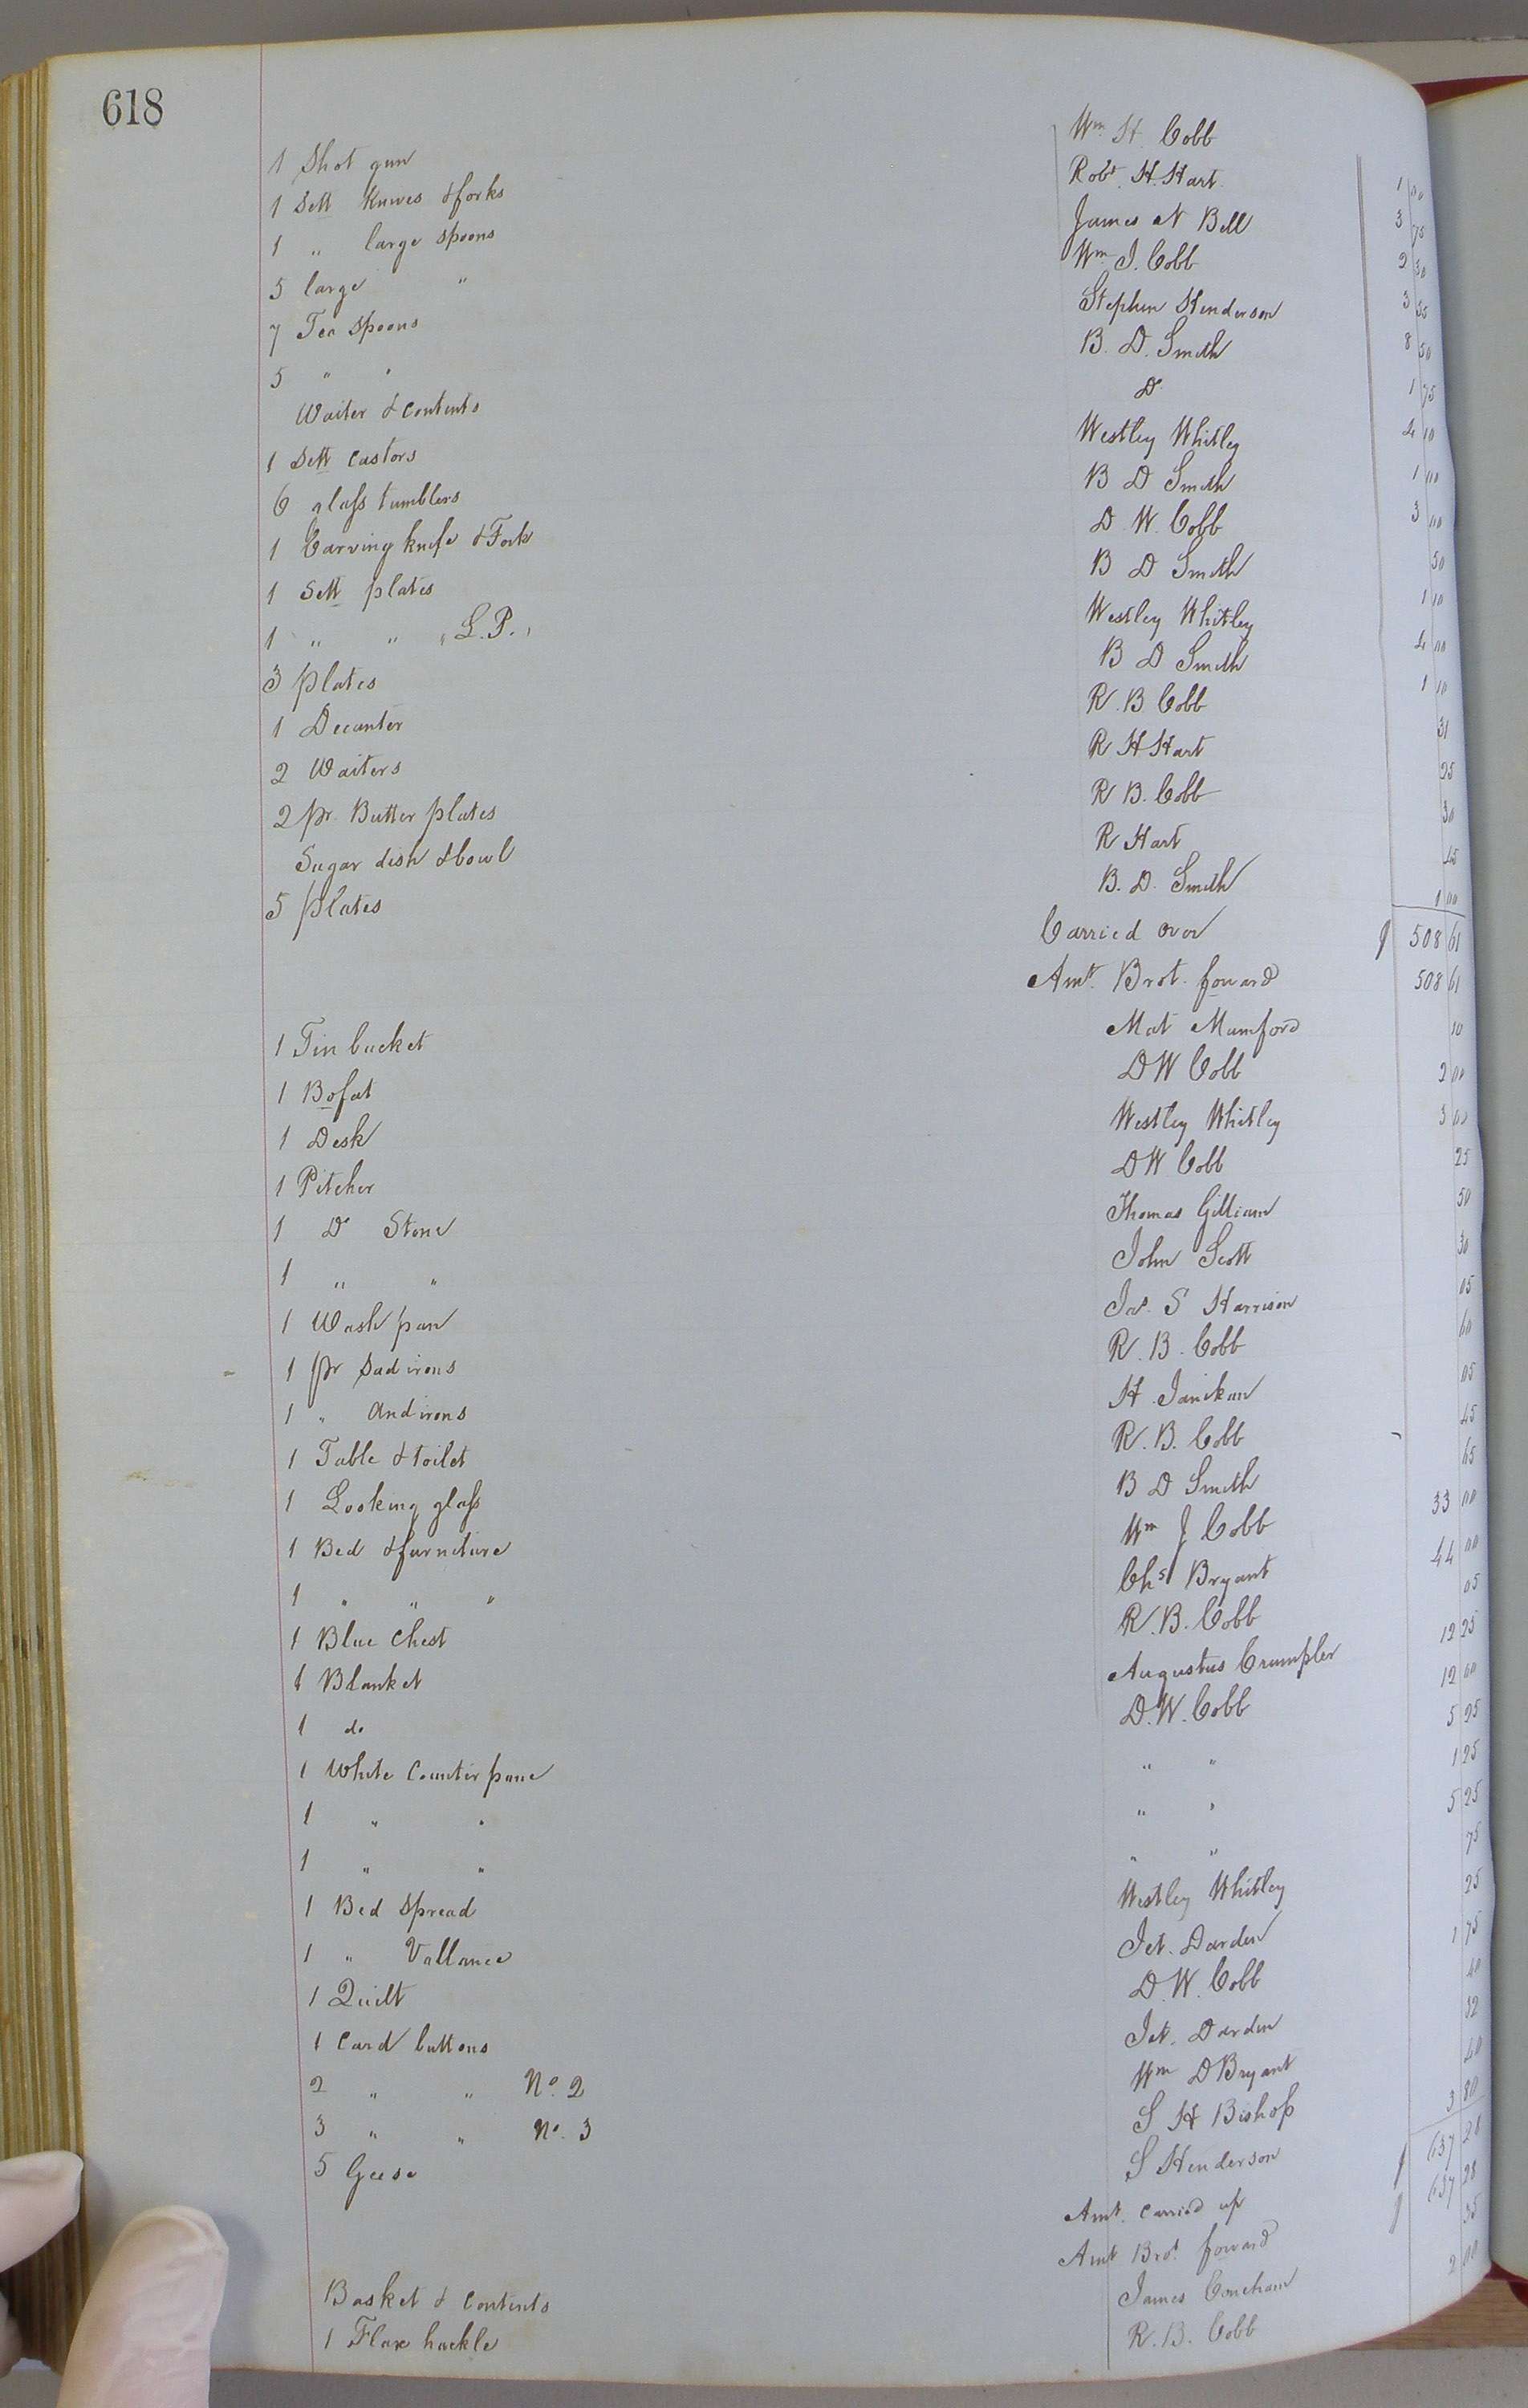 618
1 Shot gun Wm H. Cobb 1 00
1 Sett Knives & forks Robt. H. Hart 3 75
1 " large spoons James N Bell 2 50
5 large " Wm J. Cobb 3 55
7 Tea Spoons Stephen Henderson 8 50
5 " " B. D. Smith 1 75
Waiter & Contents Do 4 10
1 Sett Castors Westley Whitley 1 00
6 glass tumblers B D Smith 3 00
1 Carving knife & Fork D. W. Cobb 50
1 Sett plates B D Smith 1 10
1 " " "L.P." Westley Whitley 4 00
3 plates B D Smith 1 10
1 Decanter R. B. Cobb 31
2 Waiters R H Hart 25
2 pr. Butter plates R B. Cobb 30
Sugar dish & bowl R Hart 45
5 plates B. D. Smith 1 00
Carried over $ 508 61
Amt. Brot. foward 508 61
1 Tin bucket Mat Mumford 10
1 Bofat D W Cobb 2 00
1 Desk Westley Whitley 3 00
1 Pitcher D W Cobb 25
1 Do Stone Thomas Gilliam 50
1 " " John Scott 30
1 Wash pan Jas. S Harrison 05
1 pr Sad irons R. B. Cobb 60
1 " And irons H. Janikan 05
1 Table & toilet R. B. Cobb 45
1 Looking glass B D Smith 65
1 Bed & furniture Wm J Cobb 33 00
1 " " " Chs Bryant 44 00
1 Blue Chest R. B. Cobb 05
1 Blanket Augustus Crumpler 12 25
1 do D. W. Cobb 12 00
1 White Counter pane " " 5 25
1 " " " " 1 25
1 " " " " 5 25
1 Bed Spread Westley Whitley 75
1 " Vallance Jet. Darden 25
1 Quilt D. W. Cobb 1 75
1 Card buttons Jet. Darden 40
2 " " No. 2 Wm D Bryant 32
3 " " No. 3 S H Bishop 40
5 Geese S Henderson 3 80
Amt. Carried up $ 637 28
Amt Brot. foward $ 637 28
Basket & Contents James Concham 35
1 Flax hackle R. B. Cobb 2 00